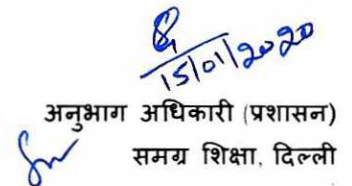 15/01/2020
अनुभाग अधिकारी (प्रशासन)
समग्र शिक्षा, दिल्ली